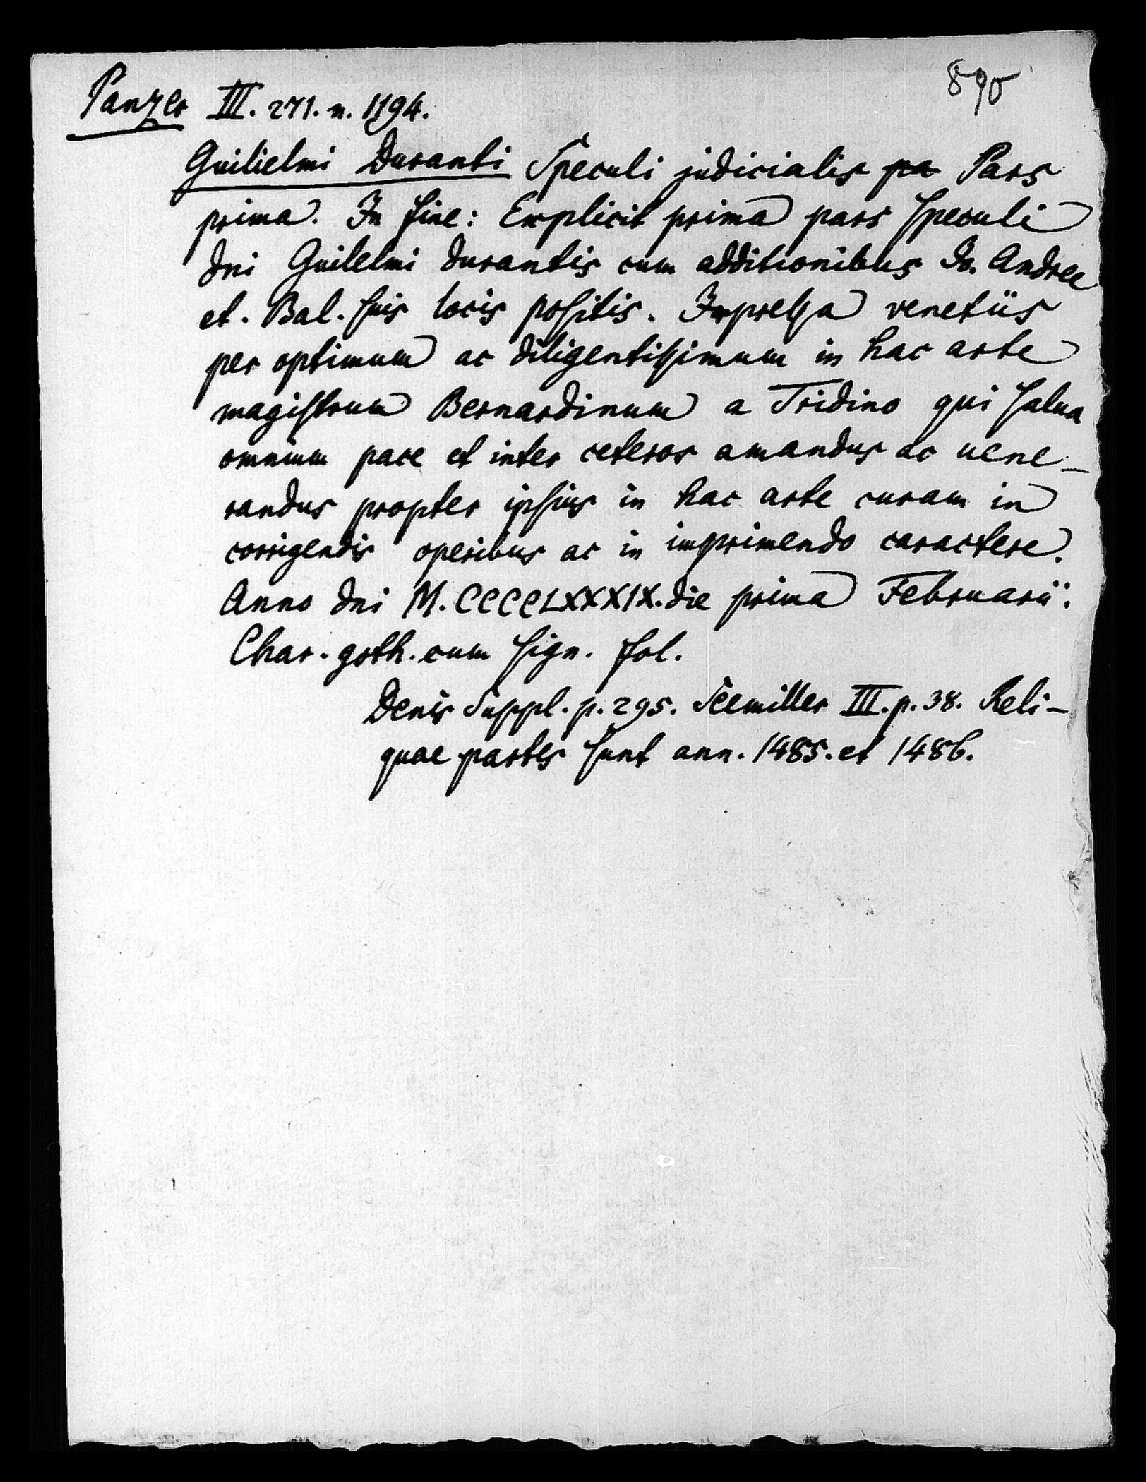 890
Panzer III. 271. n. 1194.
Guilielmi Duranti Speculi judicialis pa Pars
prima. In fine: Explicit prima pars speculi
dni Guilelmi durantis cum additionibus Jo. Andree
et. Bal. suis locis positis. Impressa venetiis
per optimum ac diligentissimum in hac arte
magistrum Bernardinum a Tridino qui salua
omnium pace et inter ceteros amandus ac uene-
randus propter ipsius in hac arte curam in
corrigendis operibus ac in imprimendo caractere.
Anno dni M.CCCCLXXXIX. die prima Februarii.
Char. goth. cum sign. fol.
Denis Suppl. p. 295. Seemiller III. p. 38. Reli-
quae partes sunt ann. 1485. et 1486.